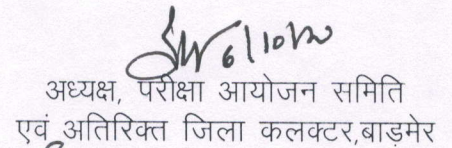 6/10/20
अध्यक्ष, परीक्षा आयोजन समिति
एवं अतिरिक्त जिला कलक्टर,बाड़मेर